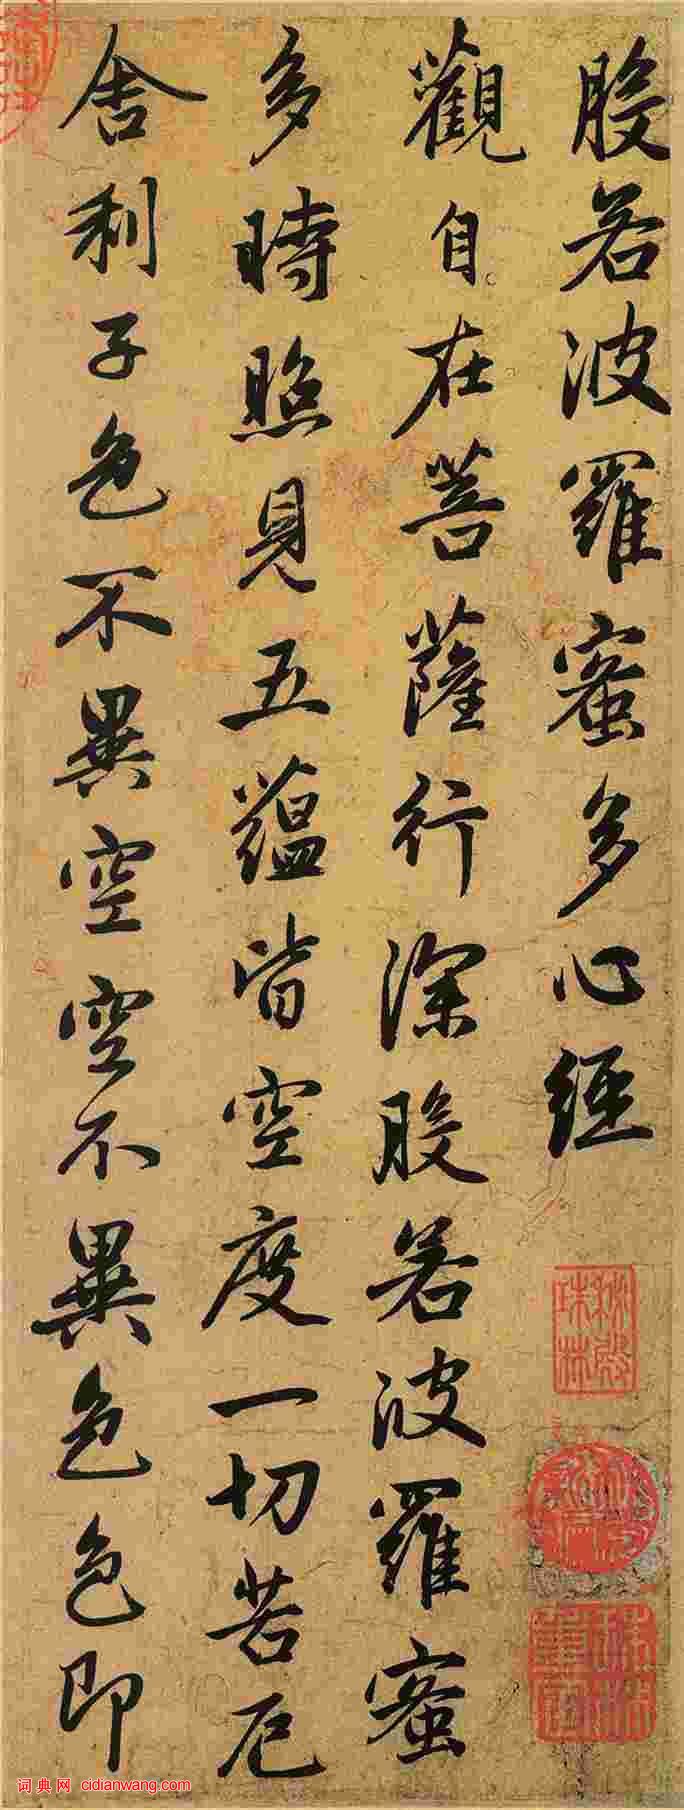 般若波羅蜜多心經
觀自在菩薩行深般若波羅蜜
多時照見五蘊皆空度一切苦厄
舍利子色不異空空不異色色即
秘殿珠林
珠林重定
词典网 cidianwang.com